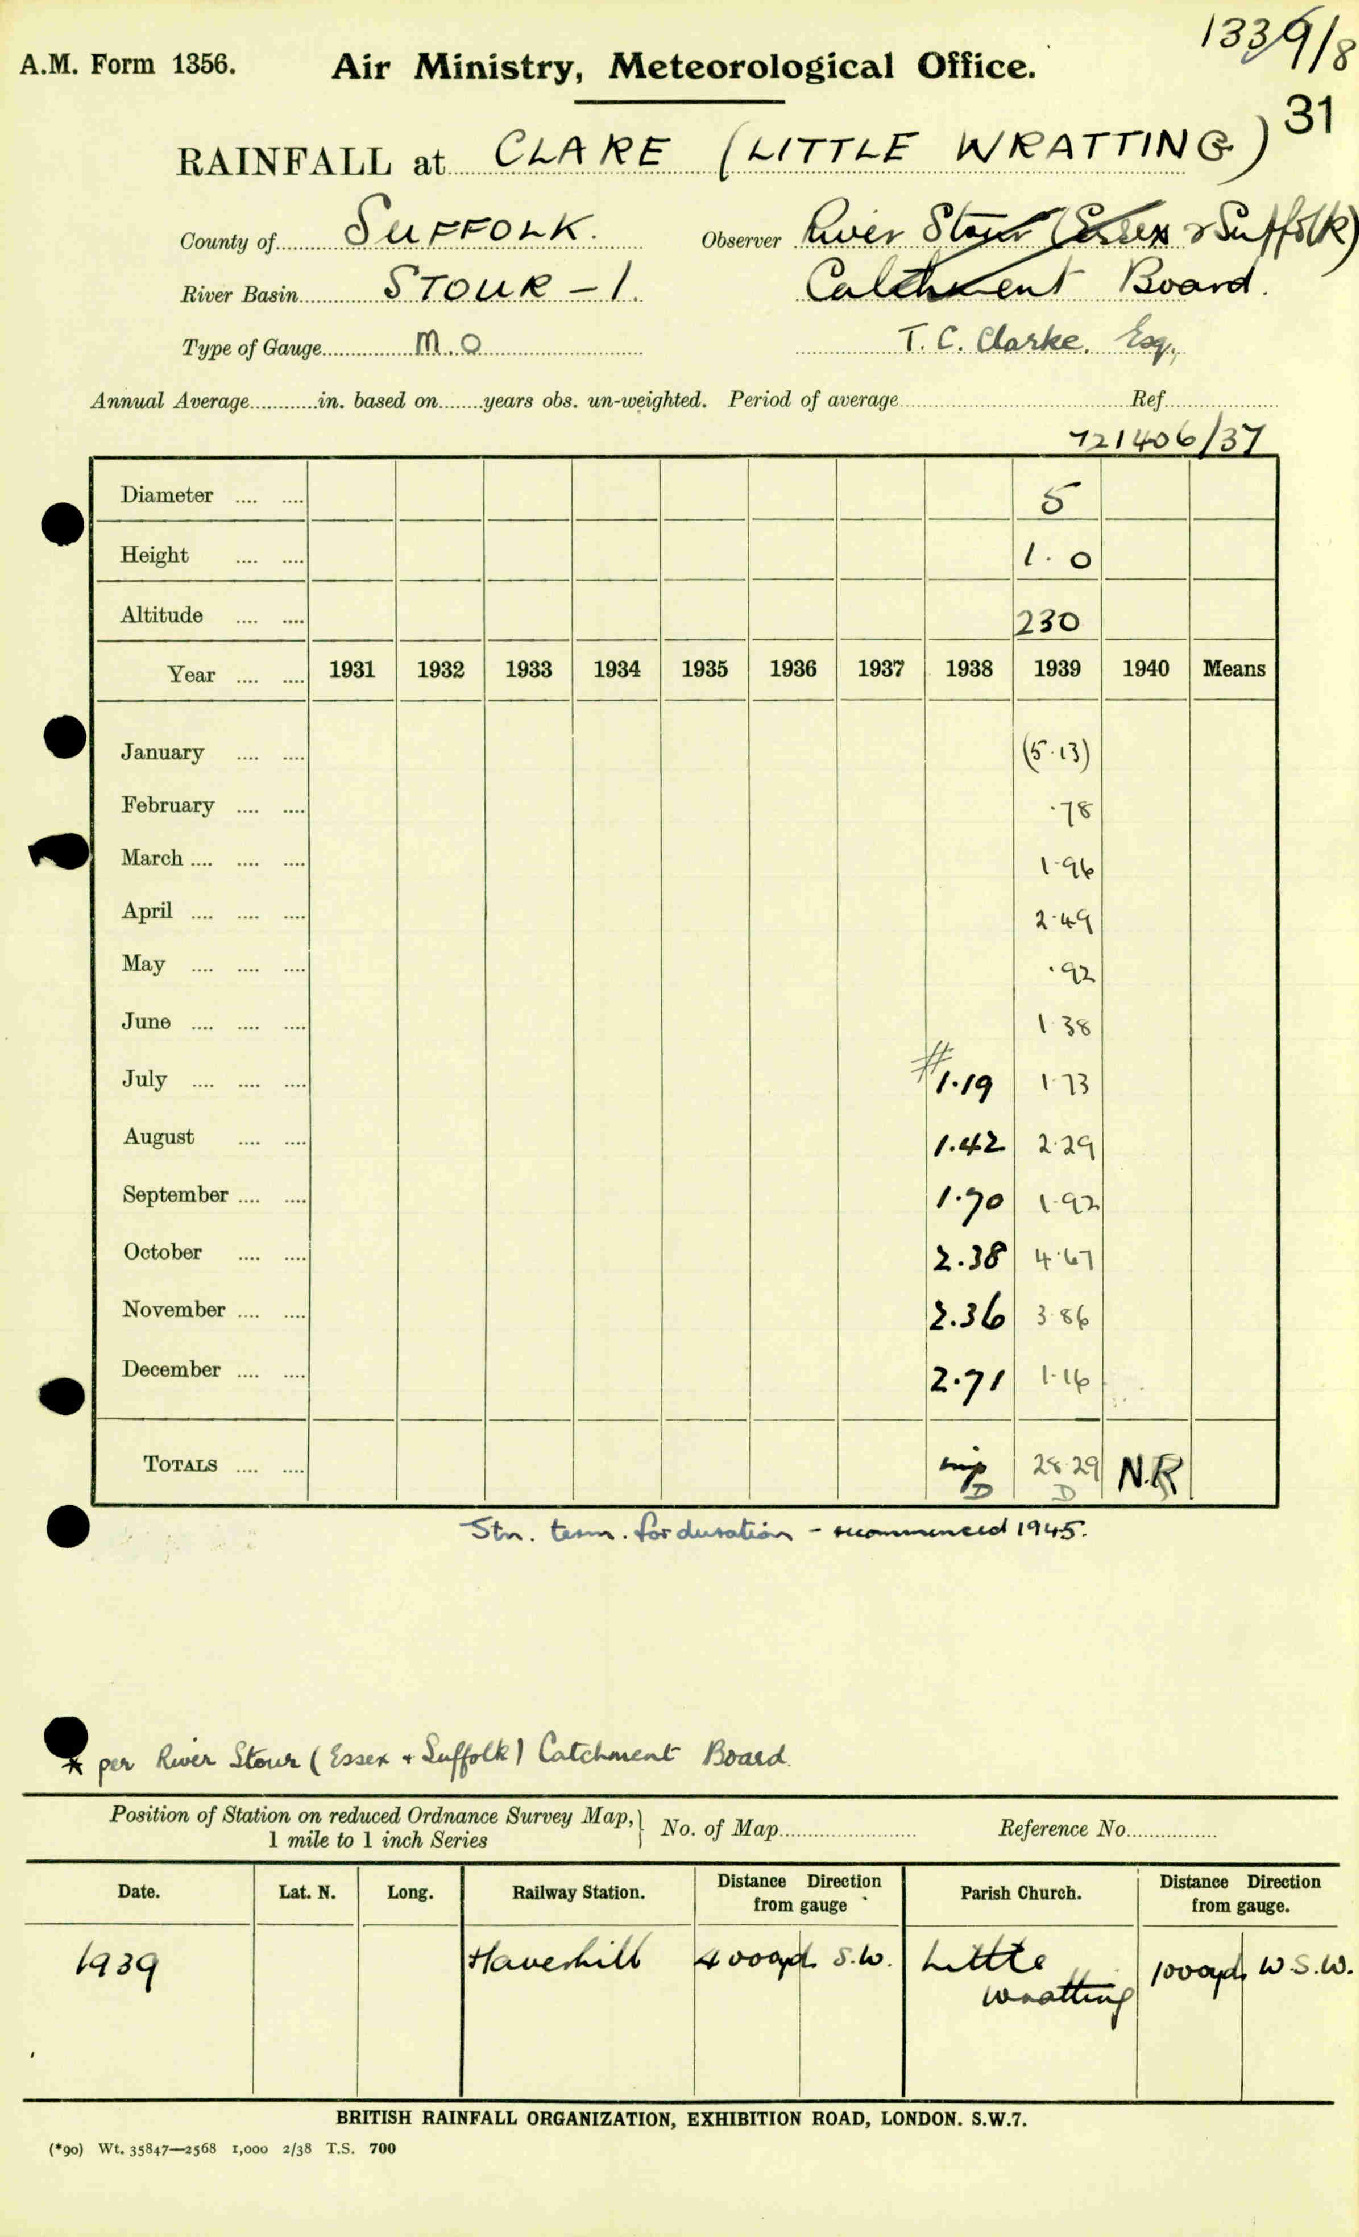 1339/8
A.M. Form 1356. Air Ministry, Meteorological Office.
31
RAINFALL at CLARE (LITTLE WRATTING)
County of SUFFOLK. Observer River Stour (Essex & Suffolk)
River Basin STOUR - 1. Catchment Board.
Type of Gauge M.O T. C. Clarke. Esq.,
Annual Average............in. based on.......years obs. un-weighted. Period of average........ Ref........
721406/37
Diameter .... .... 5
Height .... .... 1.0
Altitude .... .... 230
Year .... .... 1931 1932 1933 1934 1935 1936 1937 1938 1939 1940 Means
January .... .... (5.13)
February .... .... .78
March .... .... .... 1.96
April .... .... .... 2.49
May .... .... .... .92
June .... .... .... 1.38
July .... .... .... # 1.19 1.73
August .... .... 1.42 2.29
September .... .... 1.70 1.92
October .... .... 2.38 4.67
November .... .... 2.36 3.86
December .... .... 2.71 1.16
TOTALS .... .... 28.29 N.R
D D
Stn. term. for duration - recommenced 1945.
* per River Stour (Essex + Suffolk) Catchment Board.
Position of Station on reduced Ordnance Survey Map, } No. of Map........ Reference No........
1 mile to 1 inch Series
Date. Lat. N. Long. Railway Station. Distance Direction from gauge Parish Church. Distance Direction from gauge.
1939 Haverhill 4000yds S.W. Little Wratting 1000yds W.S.W.
BRITISH RAINFALL ORGANIZATION, EXHIBITION ROAD, LONDON. S.W.7.
(*90) Wt. 35847—2568 1,000 2/38 T.S. 700